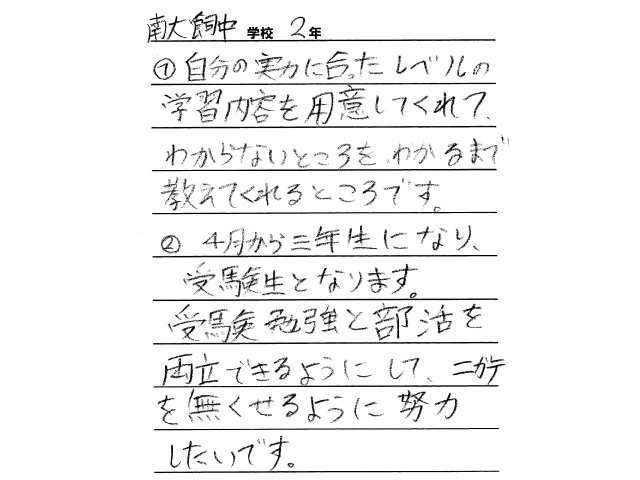 南犬飼中 学校 2年
① 自分の実力に合ったレベルの
学習内容を用意してくれて、
わからないところを、わかるまで
教えてくれるところです。
② 4月から三年生になり、
受験生となります。
受験勉強と部活を
両立できるようにして、ニガテ
を無くせるように努力
したいです。